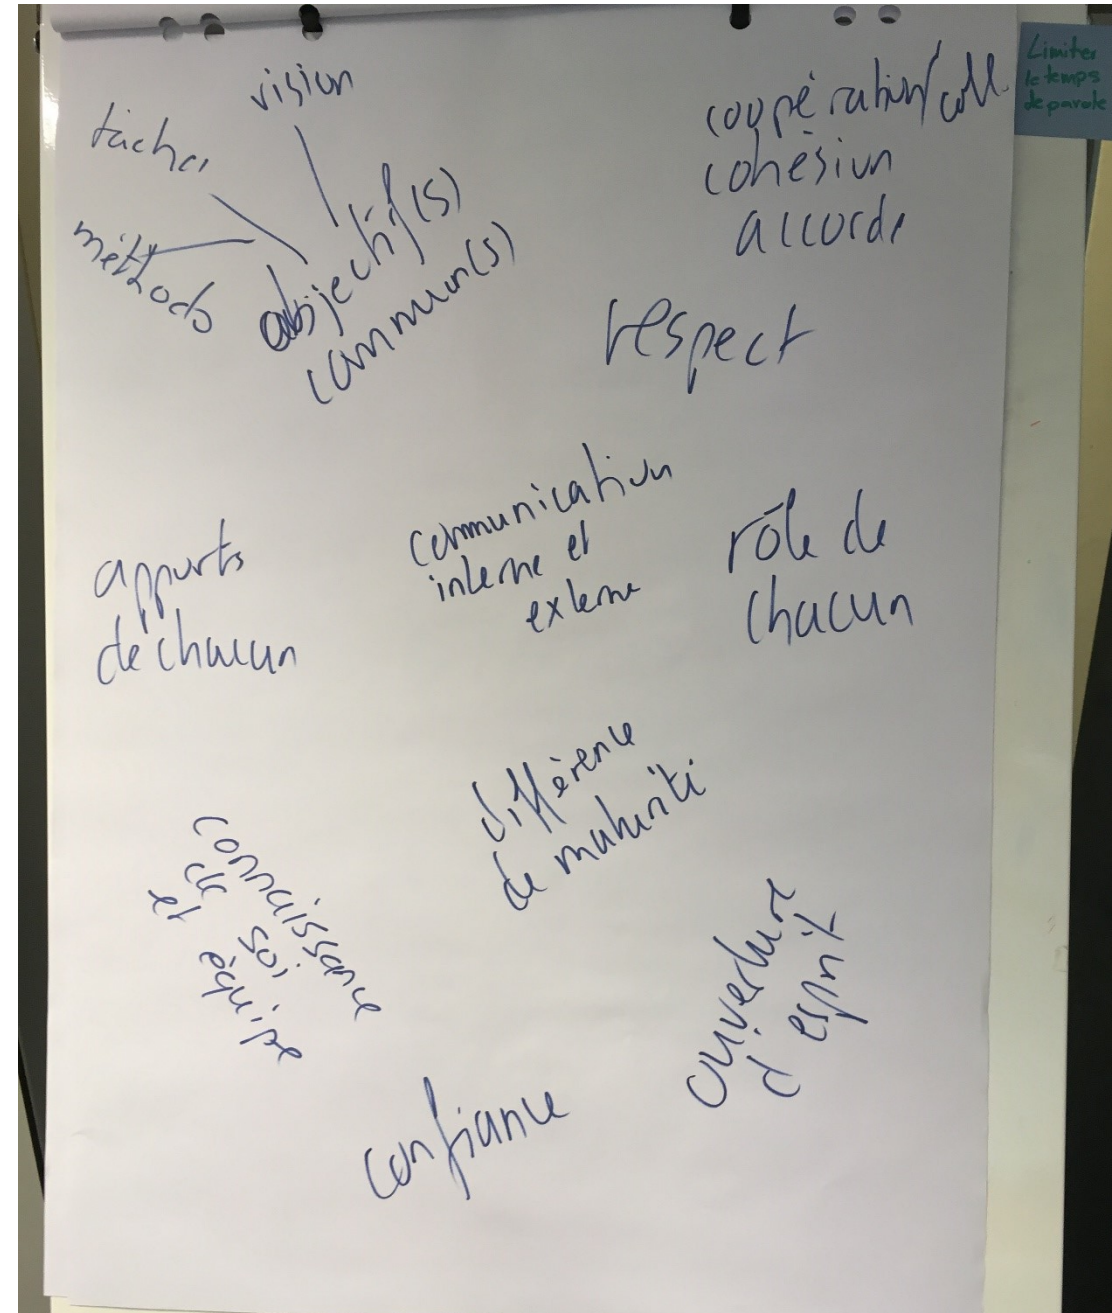 vision
taches
méthodo
objectif(s)
commun(s)
coopération/coll.
cohésion
accorde
Limiter
le temps
de parole
respect
apports
de chacun
communication
interne et
externe
rôle de
chacun
différence
de maturité
connaissance
de soi
et équipe
ouverture
d'esprit
confiance